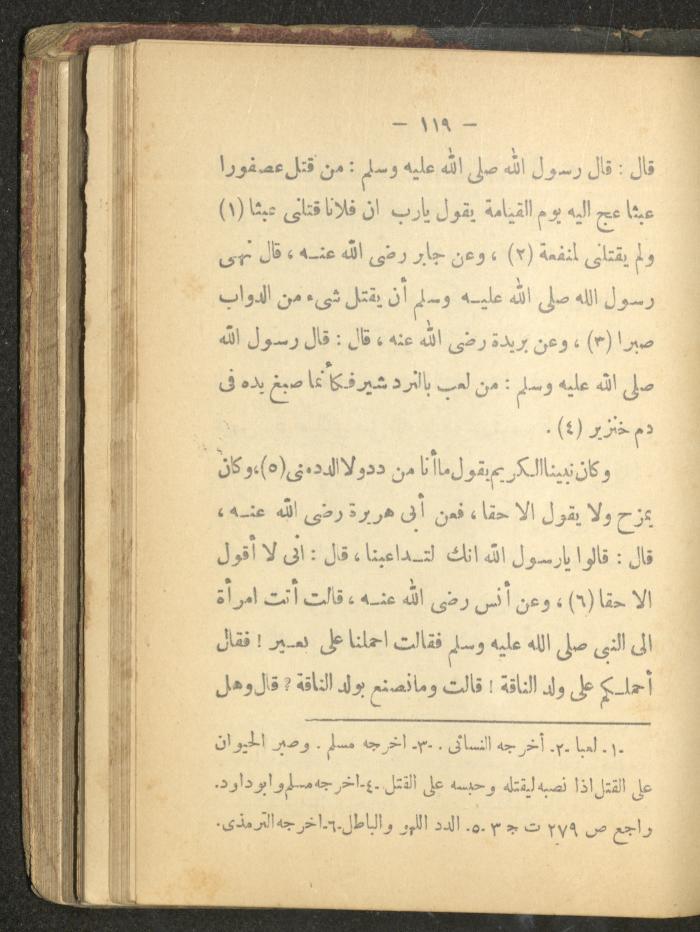 — ١١٩ —
قال : قال رسول الله صلى الله عليه وسلم : من قتل عصفورا
عبثا عج اليه يوم القيامة يقول يارب ان فلانا قتلنى عبثا (١)
ولم يقتلنى لمنفعة (٢) ، وعن جابر رضى الله عنه ، قال نهى
رسول الله صلى الله عليه وسلم أن يقتل شىء من الدواب
صبرا (٣) ، وعن بريدة رضى الله عنه ، قال : قال رسول الله
صلى الله عليه وسلم : من لعب بالنردشير فكأنما صبغ يده فى
دم خنزير (٤) .
وكان نبينا الكريم يقول ماأنا من دد ولا الدد منى (٥)، وكان
يمزح ولا يقول الا حقا ، فعن أبى هريرة رضى الله عنه ،
قال : قالوا يارسول الله انك لتداعبنا ، قال : انى لا أقول
الا حقا (٦) ، وعن أنس رضى الله عنه ، قالت أتت امرأة
الى النبى صلى الله عليه وسلم فقالت احملنا على بعير ! فقال
أحملكم على ولد الناقة ! قالت ومانصنع بولد الناقة ? قال وهل
-١- لعبا -٢- أخرجه النسائى . -٣- اخرجه مسلم . وصبر الحيوان
على القتل اذا نصبه ليقتله وحبسه على القتل -٤- اخرجه مسلم وابو داود.
راجع ص ٢٧٩ ت ج ٣ -٥- الدد اللهو والباطل -٦- اخرجه الترمذى.